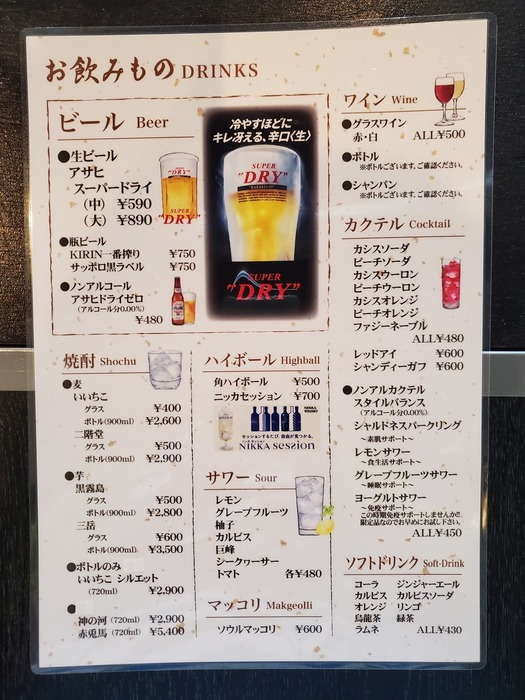 お飲みもの DRINKS
ビール Beer
●生ビール
アサヒ
スーパードライ
（中） ¥590
（大） ¥890
●瓶ビール
KIRIN一番搾り ¥750
サッポロ黒ラベル ¥750
●ノンアルコール
アサヒドライゼロ
（アルコール分0.00%）
¥480
冷やすほどに
キレ冴える、辛口〈生〉
SUPER
"DRY"
SUPER
"DRY"
"DRY"
SUPER
"DRY"
焼酎 Shochu
●麦
いいちこ
グラス ¥400
ボトル(900ml) ¥2,600
二階堂
グラス ¥500
ボトル(900ml) ¥2,900
●芋
黒霧島
グラス ¥500
ボトル(900ml) ¥2,800
三岳
グラス ¥600
ボトル(900ml) ¥3,500
●ボトルのみ
いいちこ シルエット
(720ml) ¥2,900
●
神の河 (720ml) ¥2,900
赤兎馬 (720ml) ¥5,400
ハイボール Highball
角ハイボール ¥500
ニッカセッション ¥700
NIKKA
WHISKY
セッションするたび、自由が見つかる。
NIKKA session
サワー Sour
レモン
グレープフルーツ
柚子
カルピス
巨峰
シークヮーサー
トマト 各¥480
マッコリ Makgeolli
ソウルマッコリ ¥600
ワイン Wine
●グラスワイン
赤・白 ALL¥500
●ボトル
※ボトルございます、ご確認ください。
●シャンパン
※ボトルございます、ご確認ください。
カクテル Cocktail
カシスソーダ
ピーチソーダ
カシスウーロン
ピーチウーロン
カシスオレンジ
ピーチオレンジ
ファジーネーブル
ALL¥480
レッドアイ ¥600
シャンディーガフ ¥600
●ノンアルカクテル
スタイルバランス
（アルコール分0.00%）
シャルドネスパークリング
～素肌サポート～
レモンサワー
～食生活サポート～
グレープフルーツサワー
～睡眠サポート～
ヨーグルトサワー
～免疫サポート～
この時期免疫サポートしませんか!!
限定品なのでお早めにお試し下さい。
ALL¥450
ソフトドリンク Soft-Drink
コーラ ジンジャーエール
カルピス カルピスソーダ
オレンジ リンゴ
烏龍茶 緑茶
ラムネ ALL¥430